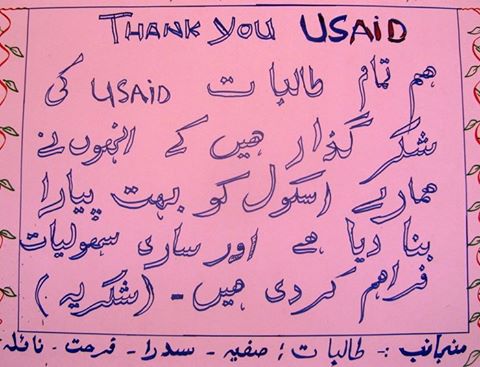 THANK YOU USAID
ہم تمام طالبات USAID کی
شکر گذار ہیں کے انہوں نے
ہمارے اسکول کو بہت پیارا
بنا دیا ہے اور ساری سہولیات
فراہم کردی ہیں - (شکریہ)
منجانب :- طالبات ؛ صفیہ - سدرا - فرحت - نائلہ